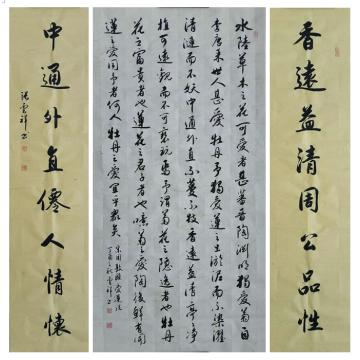 香遠益清周公品性
水陸草木之花可愛者甚蕃晉陶淵明獨愛菊自
李唐來世人甚愛牡丹予獨愛蓮之出淤泥而不染濯
清漣而不妖中通外直不蔓不枝香遠益清亭亭淨
植可遠觀而不可褻玩焉予謂菊花之隱逸者也牡丹
花之富貴者也蓮花之君子者也噫菊之愛陶後鮮有聞
蓮之愛同予者何人牡丹之愛宜乎眾矣
宋周敦頤愛蓮說
丁酉之秋雲祥書
中通外直僊人情懷
張雲祥書